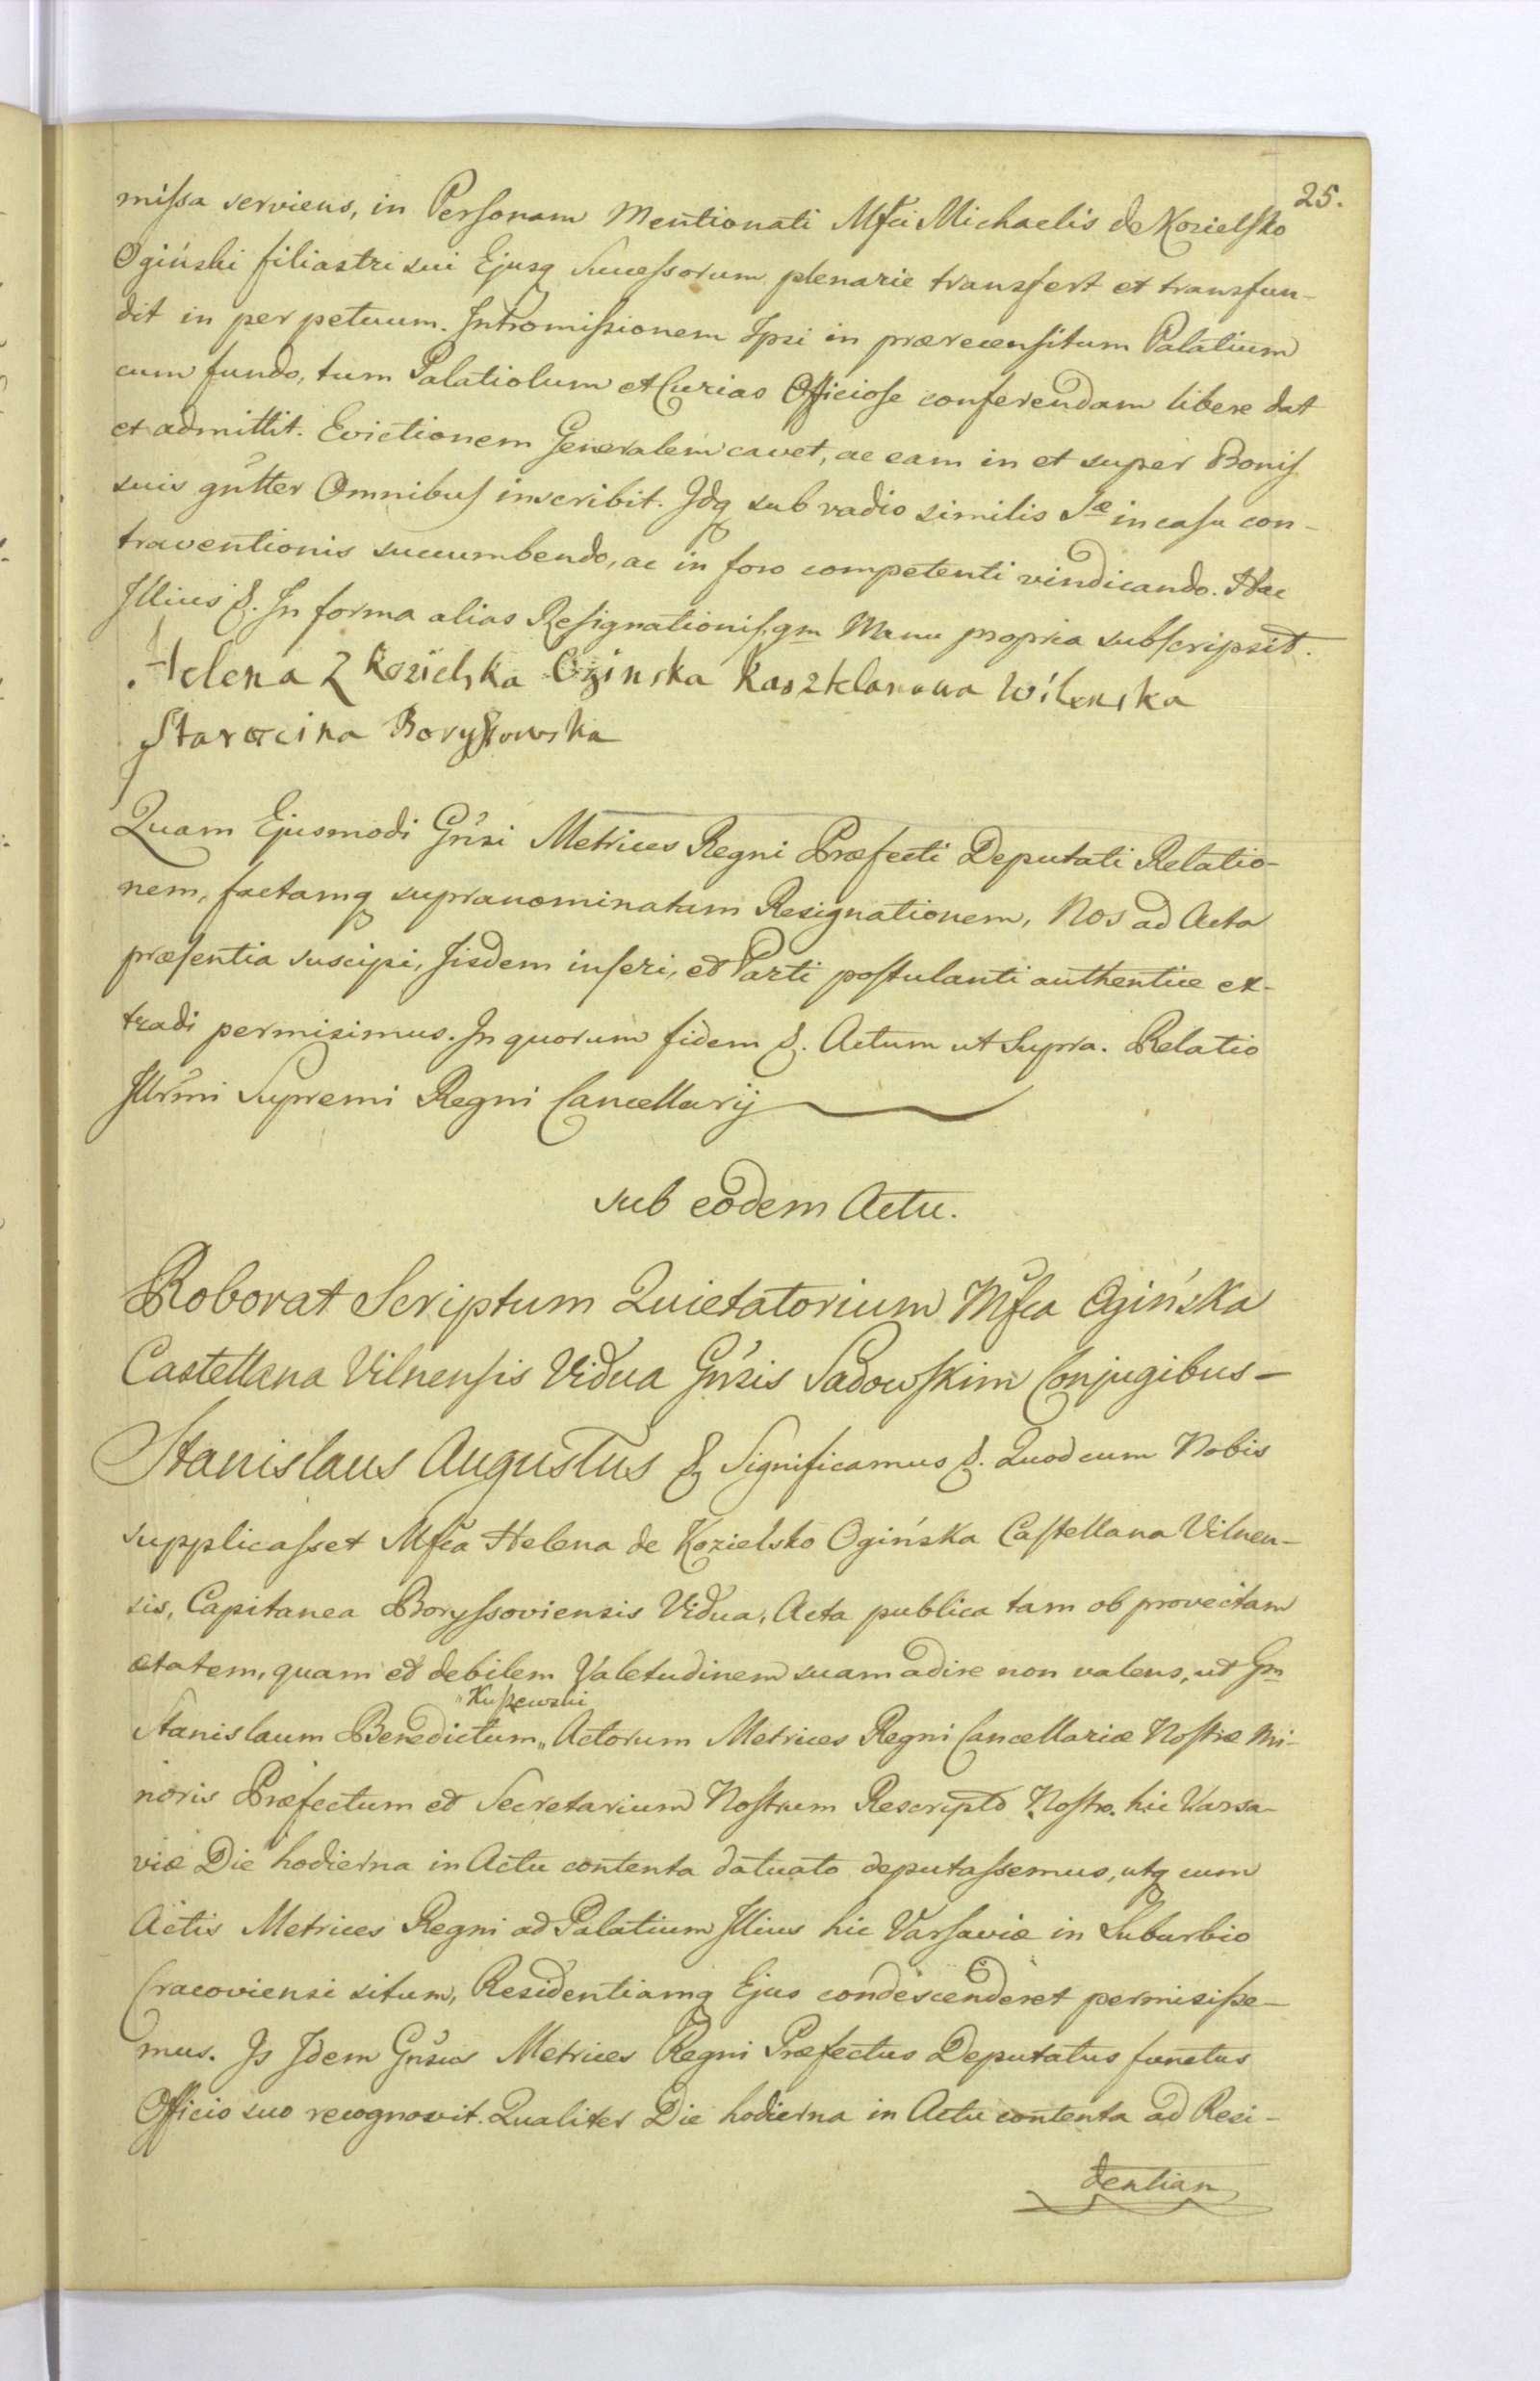 25.
missa serviens, in Personam Mentionati Mfci Michaelis de Kozielsko
Ogiński filiastri sui Ejusq Successorum plenarie transfert et transfun-
dit in perpetuum. Intromissionem Ipsi in præcensitum Palatium
cum fundo, tum Palatiolum et Curias Officiose conferendam libere dat
et admittit. Evictionem Generalem cavet, ac eam in et super Bonis
suis gñtter Omnibus inscribit. Idq sub vadio similis Sæ in casu con-
traventionis succumbendo, ac in foro competenti vindicando. Hac
Illius &. In forma alias Resignationis, qm Manu propria subscripsit.
Helena Z Kozielska Oginska Kasztelanowa Wilenska
Staroscina Borysowska
Quam Ejusmodi Gñsi Metrices Regni Præfecti Deputati Relatio-
nem, factamq supranominatam Resignationem, Nos ad Acta
præsentia suscipi, Iisdem inseri, et Parti postulanti authentice ex-
tradi permisimus. In quorum fidem &. Actum ut Supra. Relatio
Illrmi Supremi Regni Cancellarij
sub eodem Actu.
Roborat Scriptum Quietatorium Mfca Ogińska
Castellana Vilnensis Vidua Gñsis Sadowskim Conjugibus-
Stanislaus Augustus & Significamus &. Quod cum Nobis
supplicasset Mfca Helena de Kozielsko Ogińska Castellana Vilnen-
sis, Capitanea Boryssoviensis Vidua, Acta publica tam ob provectam
ætatem, quam et debilem Valetudinem suam adire non valens, ut Gm
"Kuszewski
Stanislaum Benedictum,, Actorum Metrices Regni Cancellariæ Nostræ Mi-
noris Præfectum et Secretarium Nostrum Rescripto Nostro hic Varsa-
viæ Die hodierna in Actu contenta datuato deputassemus, utq cum
Actis Metrices Regni ad Palatium Illius hic Varsaviæ in Suburbio
Cracoviensi situm, Residentiamq Ejus condescenderet permisisse-
mus. Is Idem Gñsus Metrices Regni Præfectus Deputatus functus
Officio suo recognovit. Qualiter Die hodierna in Actu contenta ad Resi-
dentiam